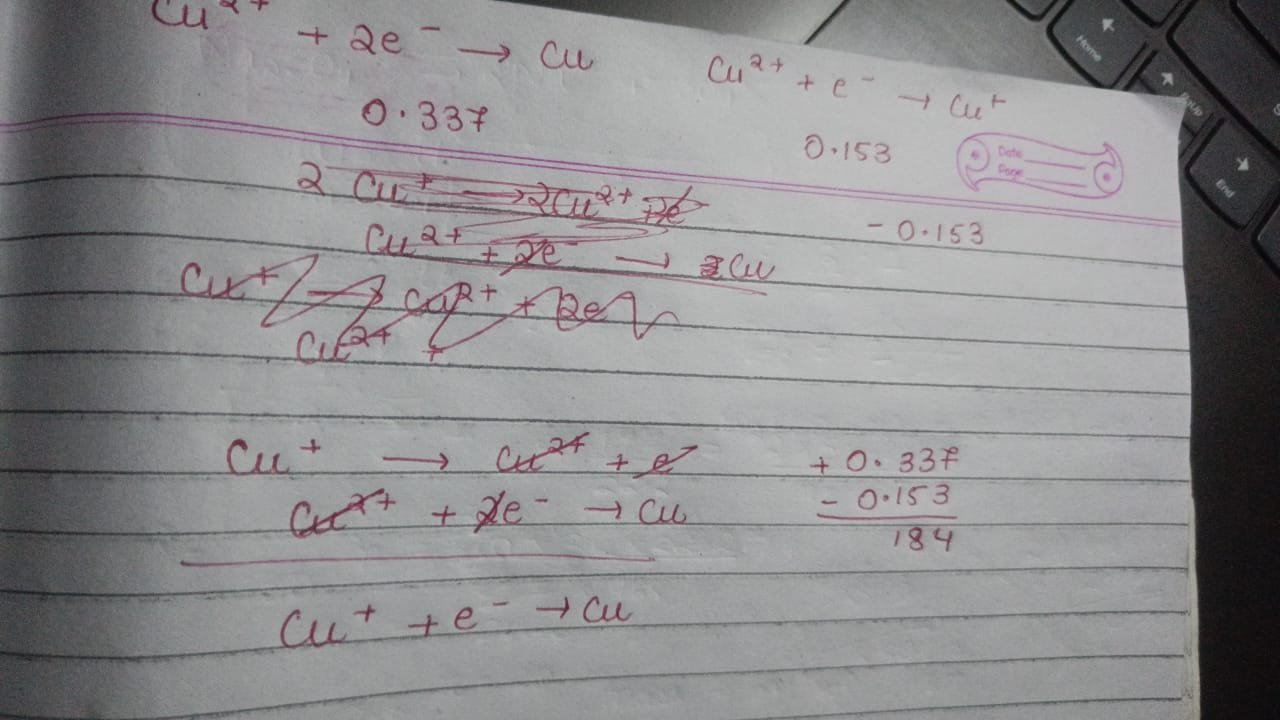 Cu²⁺ + 2e⁻ → Cu
0.337
Cu²⁺ + e⁻ → Cu⁺
0.153
Date
Page
2 Cu⁺ → 2Cu²⁺ + 2e
- 0.153
Cu²⁺ + 2e⁻ → 2Cu
Cu⁺ → Cu²⁺ + 2e
Cu²⁺ +
Cu⁺ → Cu²⁺ + e⁻
+ 0.337
Cu²⁺ + 2e⁻ → Cu
- 0.153
184
Cu⁺ + e⁻ → Cu
Home
PgUp
End